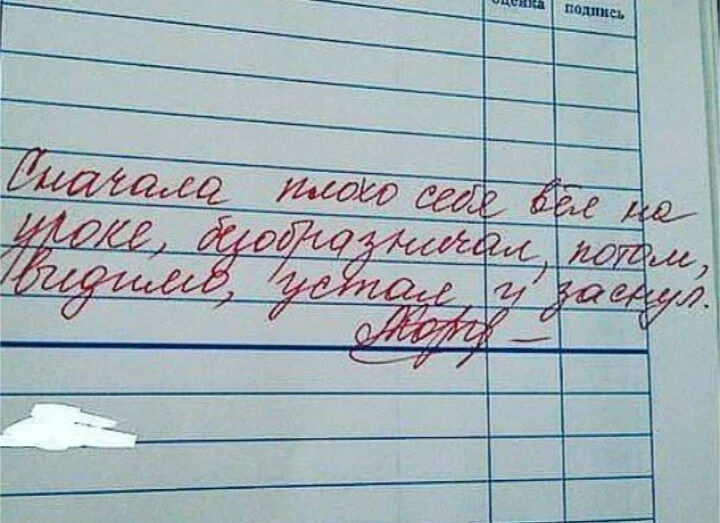 оценка подпись
Сначала плохо себя вёл на
уроке, безобразничал, потом,
видимо, устал и заснул.